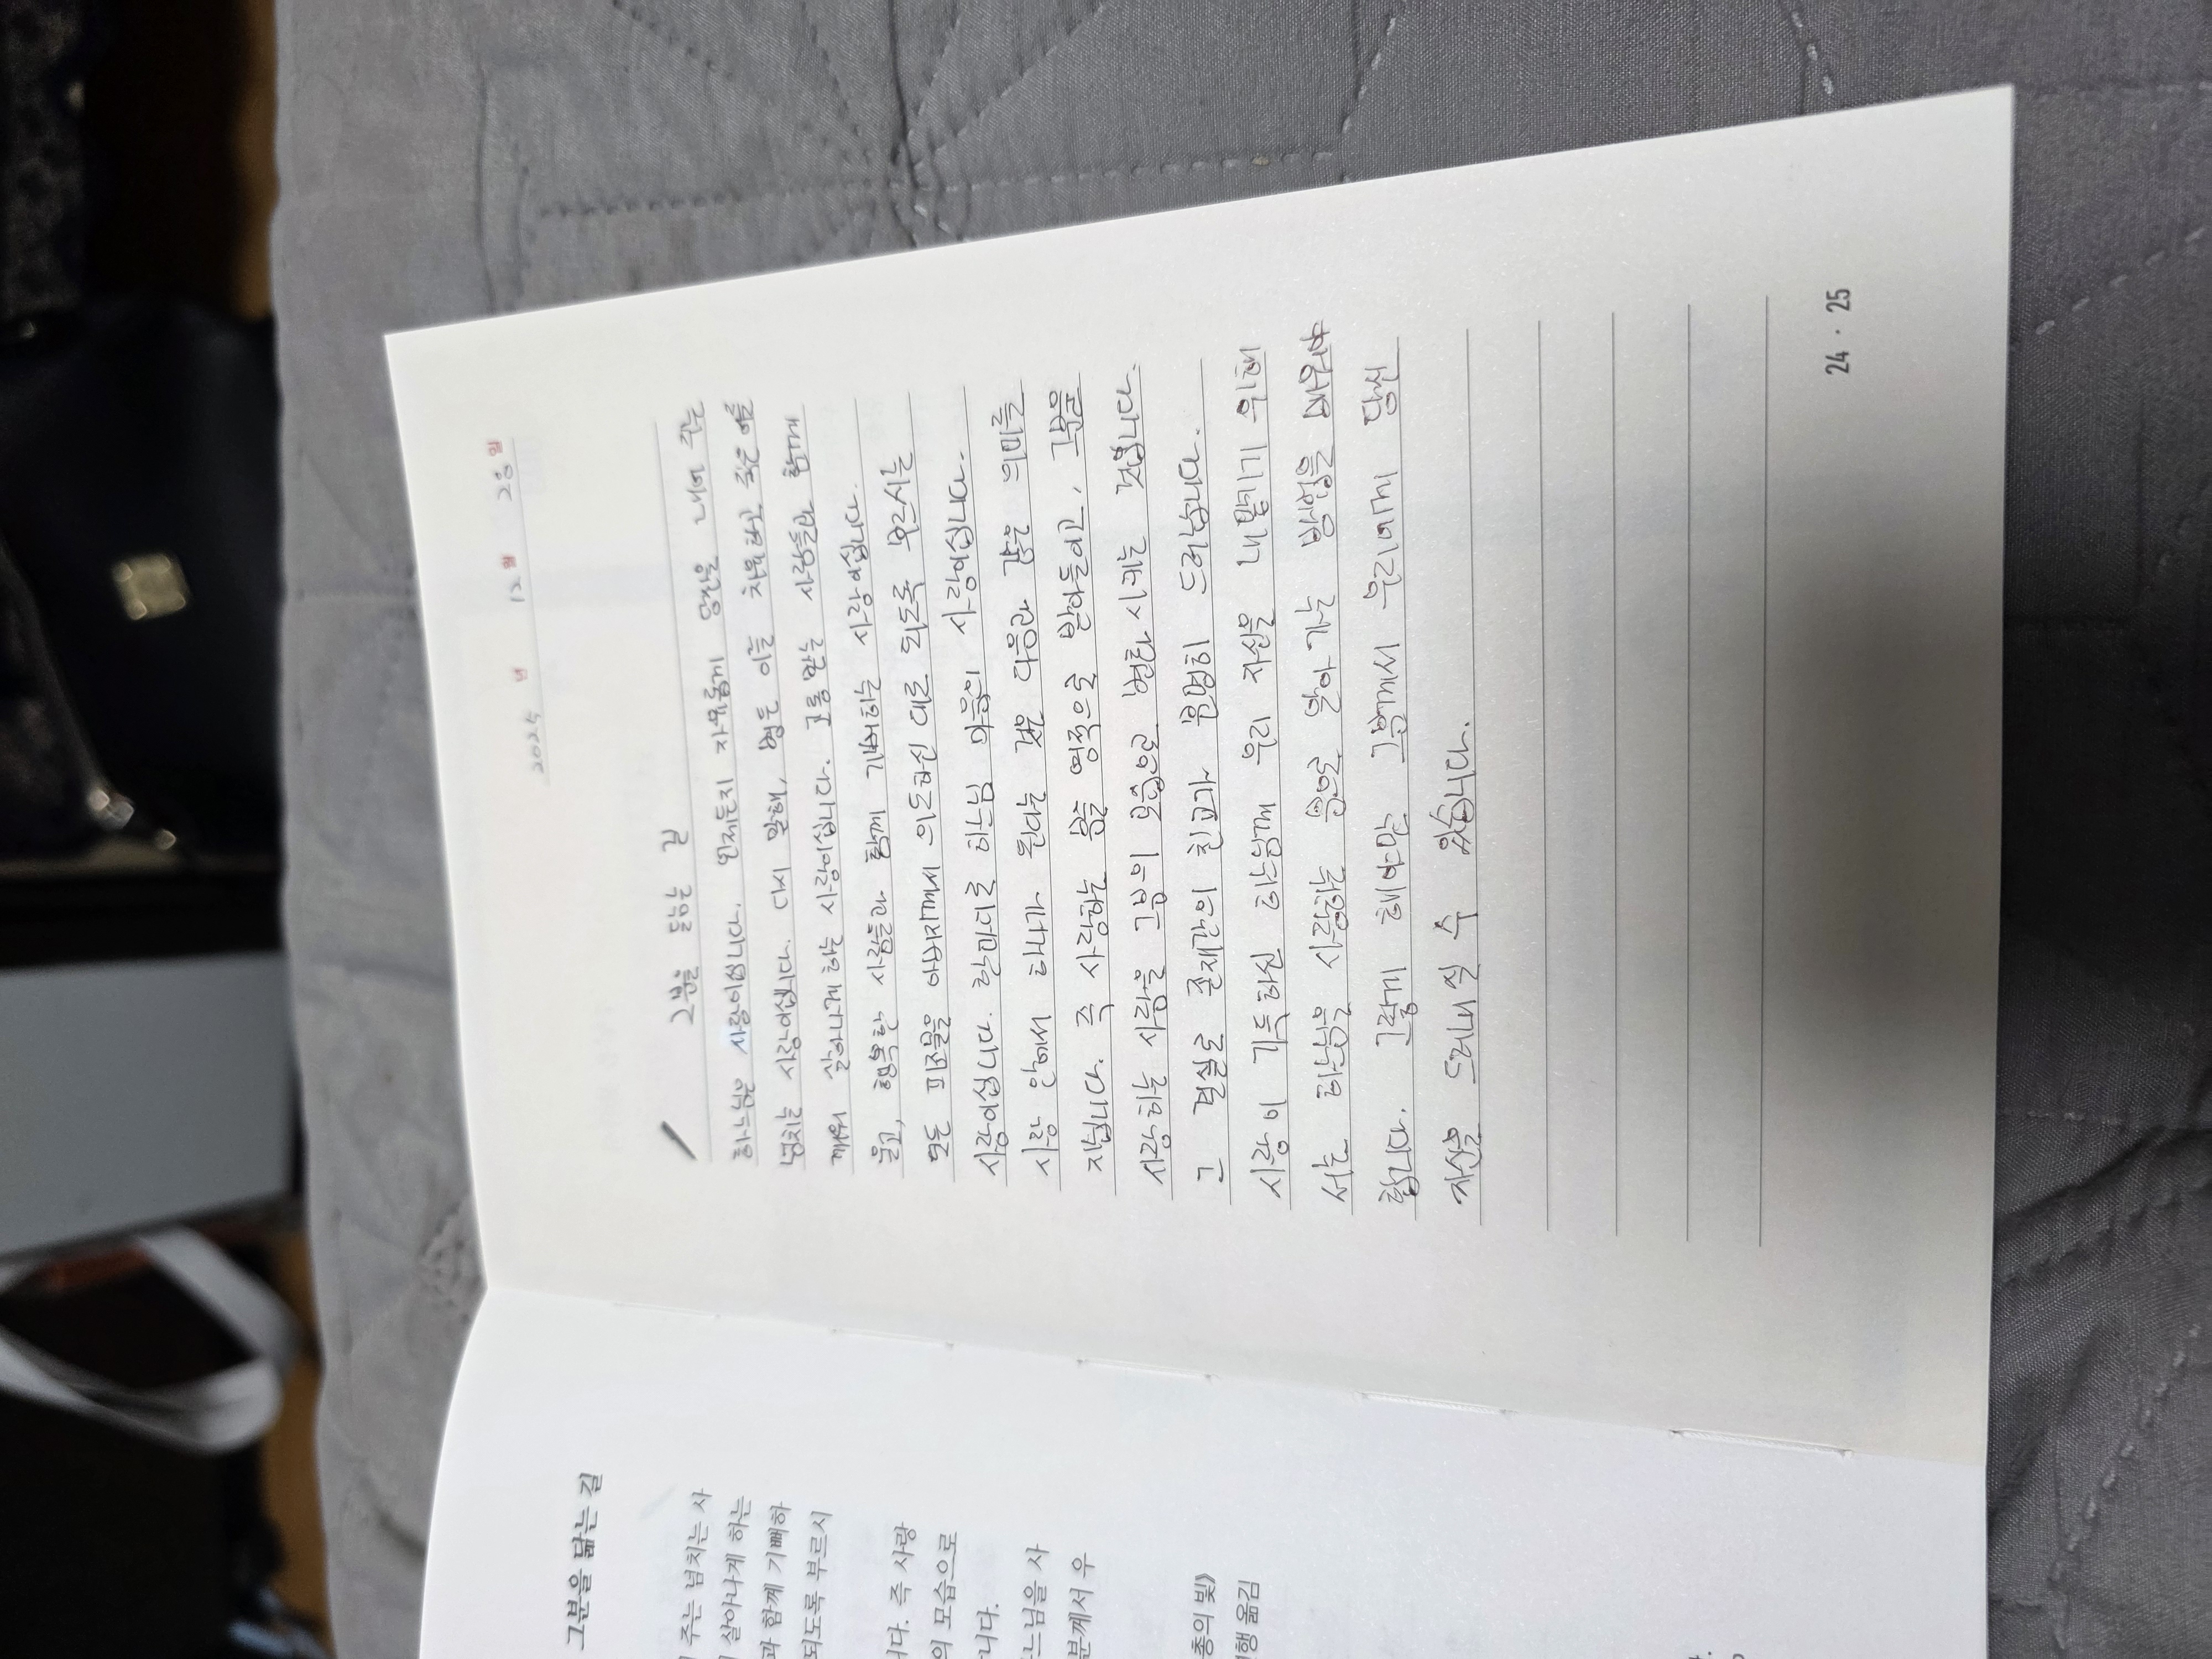 그분을 닮는 길
주는 넘치는 사
살아나게 하는
과 함께 기뻐하
되도록 부르시
니다. 즉 사랑
의 모습으로
니다.
느님을 사
분께서 우
총의 빛》
행 옮김
2025 년 12 월 28 일
그분을 닮는 길
하느님은 사랑이십니다. 언제든지 자유롭게 당신을 내어 주는
넘치는 사랑이십니다. 다시 말해, 병든 이를 치유하고 죽은 이를
깨워서 살아나게 하는 사랑이십니다. 고통 받는 사람들과 함께
울고, 행복한 사람들과 함께 기뻐하는 사랑이십니다.
모든 피조물을 아버지께서 의도하신 대로 되도록 부르시는
사랑이십니다. 한마디로 하느님 마음의 사랑이십니다.
사랑 안에서 하나가 된다는 것은 다음과 같은 의미를
지닙니다. 즉 사랑하는 분을 영적으로 받아들이고, 그분을
사랑하는 사람을 그분의 모습으로 변화시키는 것입니다.
그 결실로 존재간의 친교가 분명히 드러납니다.
사랑이 가득하신 하느님께 우리 자신을 내맡기기 위해
서는 하느님을 사랑하는 음으로 알아 가는 방법을 배워야
합니다. 그렇게 해야만 그분께서 우리에게 당신
자신을 드러내실 수 있습니다.
24 · 25